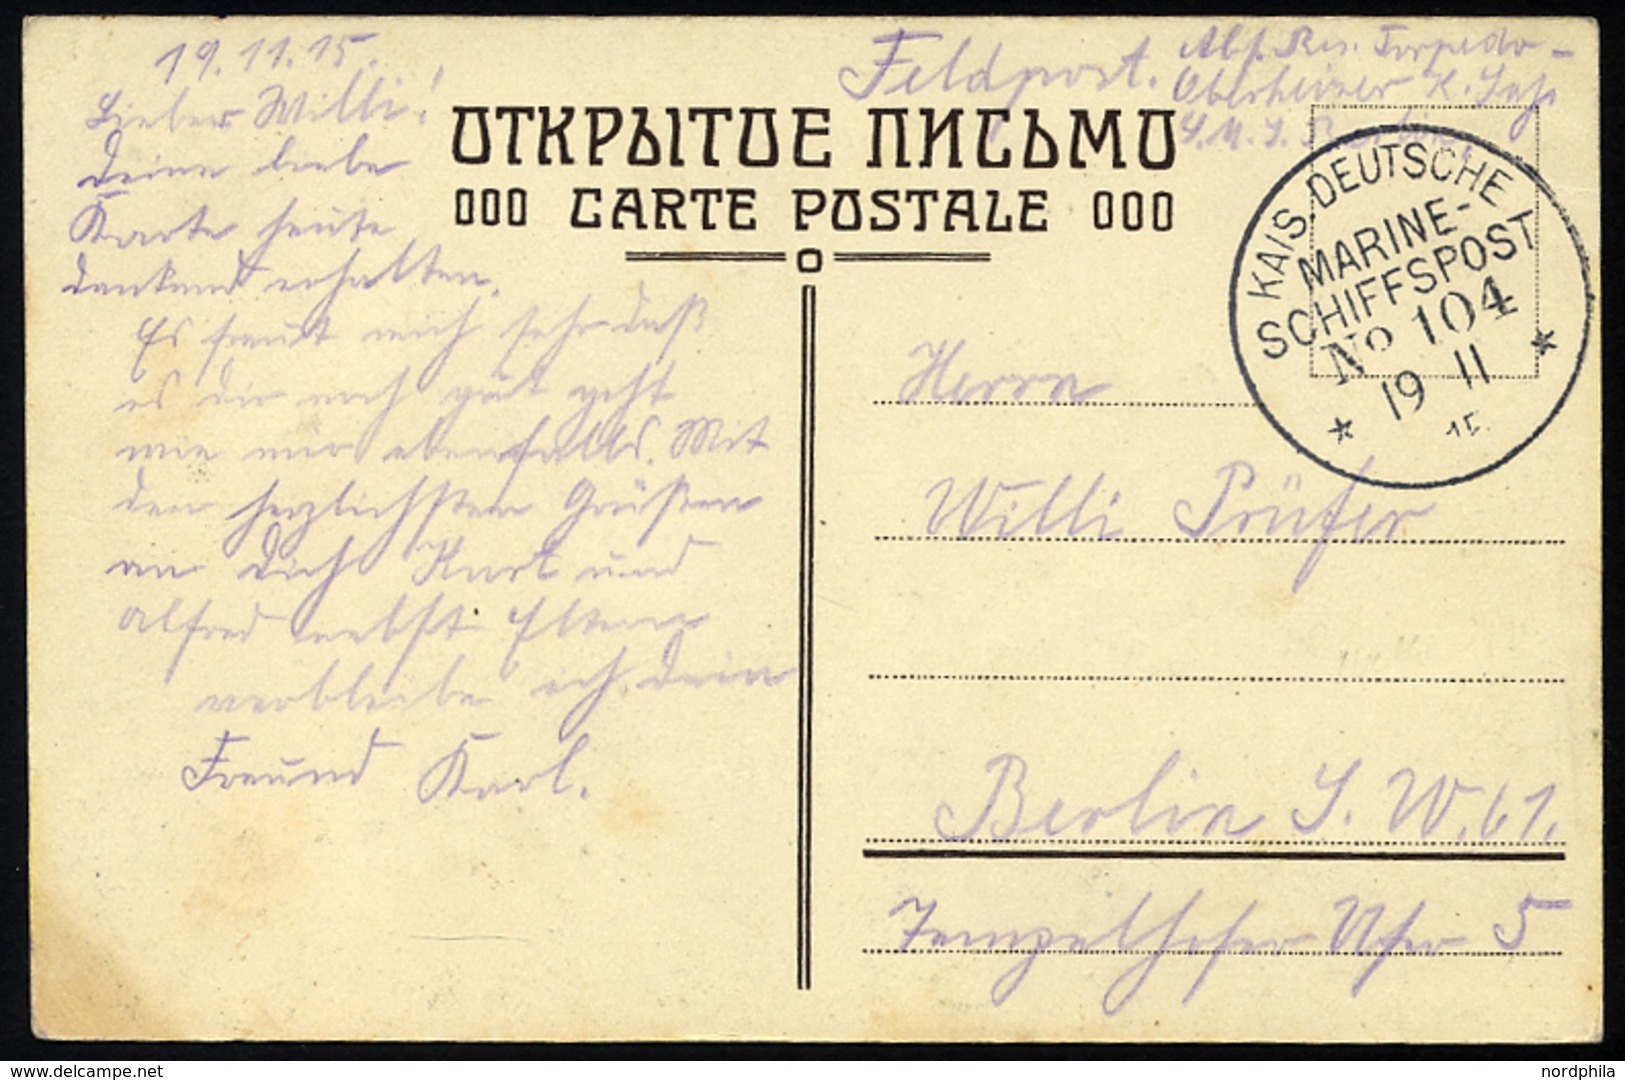 19.11.15.
Lieber Willi!
Deine liebe
Karte heute
dankend erhalten.
Es freut mich sehr daß
es dir noch gut geht
wie mir ebenfalls. Mit
den herzlichsten Grüßen
an Dich Kurt und
Alfred nebst Eltern
verbleibe ich dein
Freund Karl.
Feldpost.
Abs. Res. Torpedo-
Oberheizer K.
S.M.S.
ОТКРЫТОЕ ПИСЬМО
CARTE POSTALE
KAIS. DEUTSCHE
MARINE-
SCHIFFSPOST
No 104
19 11
15.
Herrn
Willi Prüfer
Berlin S.W.61.
Tempelhofer Ufer 5
delcampe.net
nordphila